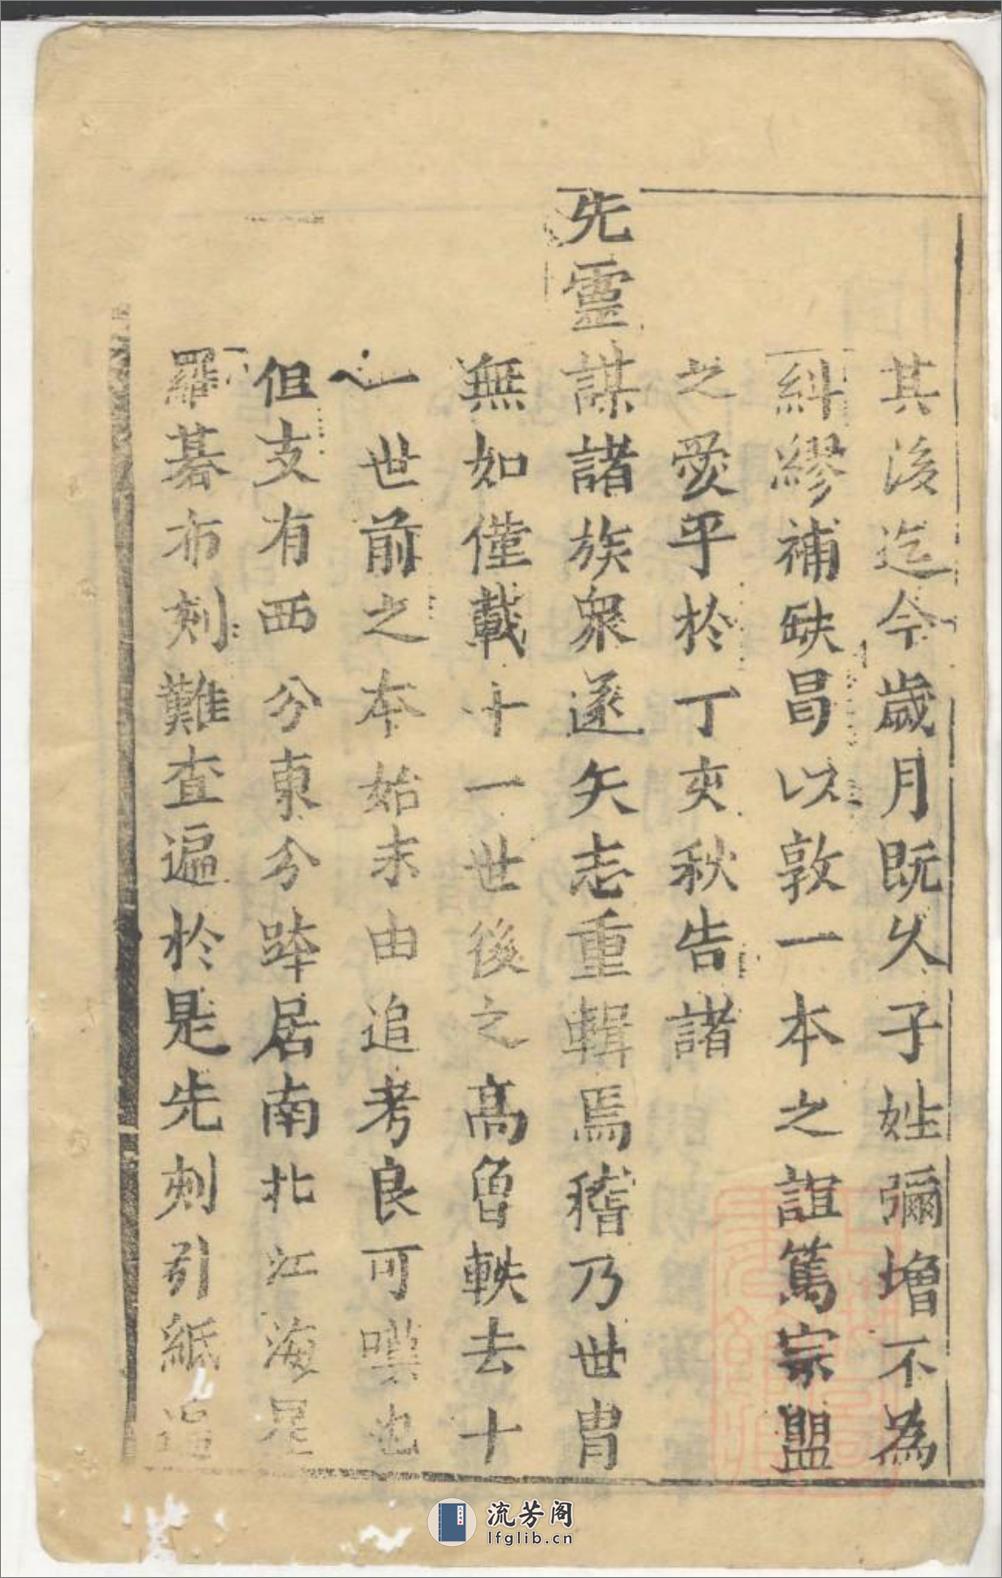 其後迄今歲月既乆子姓彌增不為
糾繆補缺曷以敦一本之誼篤宗盟
之愛乎於丁亥秋告諸
先靈謀諸族衆遂矢志重輯焉稽乃世冑
無如僅載十一世後之高曾軼去十
一世前之本始末由追考良可嘆也
但支有西分東分踪居南北江海星
羅碁布刻難查遍於是先刺引紙遍
流芳阁
lfglib.cn